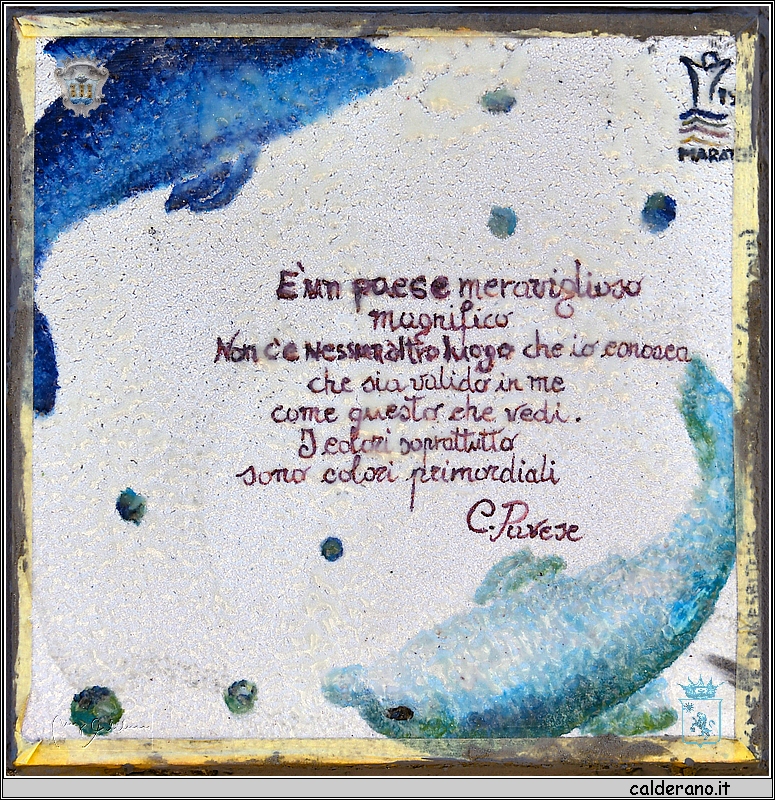 MARAT
E' un paese meraviglioso
magnifico
Non c'è nessun altro luogo che io conosca
che sia valido in me
come questo che vedi.
I colori soprattutto
sono colori primordiali
C. Pavese
calderano.it